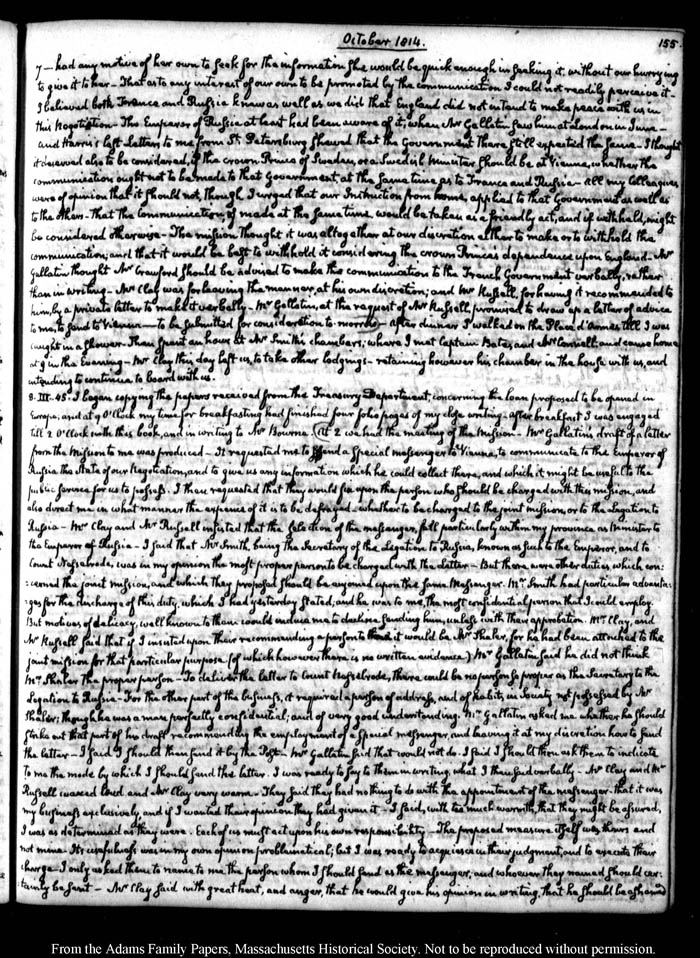 October 1814.
155
7 — had any motive of her own to seek for the information she would be quick enough in seeking it, without our hurrying
to give it to her — That as to any interest of our own to be promoted by the communication I could not readily perceive it.
I believed both France and Russia knew as well as we did that England did not intend to make peace with us in
this Negotiation — The Emperor of Russia at least had been aware of it, when Mr Gallatin saw him at London in June —
and Harris's last Letters to me from St Petersburg shewed that the Government there still expected the same — I thought
it deserved also to be considered, if the crown Prince of Sweden, or a Swedish Minister should be at Vienna, whether the
communication ought not to be made to that Government, at the same time as to France and Russia — All my Colleagues
were of opinion that it should not, though I urged that our Instruction from home, applied to that Government as well as
to the others — That the Communication, if made at the same time would be taken as a friendly act, and if withheld, might
be considered otherwise — The mission thought it was altogether at our discretion either to make or to withhold the
communication; and that it would be best to withhold it considering the crown Prince's dependence upon England — Mr
Gallatin thought Mr Crawford should be advised to make the communication to the French Government verbally, rather
than in writing — Mr Clay was for leaving the manner, at his own discretion; and Mr Russell, for having it recommended to
him, by a private letter to make it verbally — Mr Gallatin, at the request of Mr Russell, promised to draw up a letter of advice
to me, to send to Vienna — to be submitted for consideration to-morrow — after dinner I walked on the Place d'Armes till I was
caught in a shower. Then spent an hour at Mr Smith's chambers, where I met Captain Bates, and Mr Connell; and came home
at 9 in the Evening — Mr Clay this day left us, to take other lodgings — retaining however his chamber in the house with us, and
intending to continue to board with us.
8. III-45. I began copying the papers received from the Treasury Department, concerning the loan proposed to be opened in
Europe; and at 9 O'Clock my time for breakfasting had finished four folio pages of my close writing — after breakfast I was engaged
till 2 O'clock with this book, and in writing to Mr Bourne. At 2 we had the meeting of the Mission — Mr Gallatin's draft of a letter
from the Mission to me was produced — It requested me to send a special messenger to Vienna, to communicate to the Emperor of
Russia the State of our Negotiation, and to give us any information which he could collect there, and which it might be useful to the
public service for us to possess. I then requested that they would fix upon the person who should be charged with this mission, and
also direct me in what manner the expense of it is to be defrayed — whether to be charged to the joint mission, or to the Legation to
Russia — Mr Clay and Mr Russell insisted that the selection of the messenger, fell particularly within my province as Minister to
the Emperor of Russia — I said that Mr Smith, being the Secretary of the Legation to Russia, known as such to the Emperor, and to
Count Nesselrode, was in my opinion the most proper person to be charged with the letter — But there were other duties which con:
:cerned the joint mission, and which they proposed should be enjoined upon the same Messenger. Mr Smith had particular advanta:
:ges for the discharge of this duty, which I had yesterday stated, and he was to me, the most confidential person that I could employ.
But motives of delicacy, well known to them would induce me to decline sending him, unless with their approbation. Mr Clay, and
Mr Russell said that if I insisted upon their recommending a person to it would be Mr Shaler, for he had been attached to the
joint mission for that particular purpose (of which however there is no written evidence) Mr Gallatin said he did not think
Mr Shaler the proper person — To deliver the letter to Count Nesselrode, there could be no person so proper as the Secretary to the
Legation to Russia — For the other part of the business, it required a person of address, and of habits, in Society not possessed by Mr
Shaler; though he was a man perfectly confidential; and of very good understanding. Mr Gallatin asked me whether he should
strike out that part of his draft recommending the employment of a special messenger, and leaving it at my discretion how to send
the letter — I said I should then send it by the Post — Mr Gallatin said that would not do. I said I should then ask them to indicate
to me the mode by which I should send this letter. I was ready to say to them in writing, what I then said verbally — Mr Clay and Mr
Russell waxed loud and Mr Clay very warm — They said they had nothing to do with the appointment of the messenger — that it was
my business exclusively, and if I wanted their opinion they had given it — I said, with too much warmth, that they might be assured,
I was as determined as they were. Each of us must act upon his own responsibility — The proposed measure itself was theirs and
not mine. Its usefulness was in my own opinion problematical; but I was ready to acquiesce in their judgment, and to execute their
charge — I only asked them to name to me the person whom I should send as the messenger, and whoever they named should cer:
:tainly be sent — Mr Clay said with great heat, and anger, that he would give his opinion in writing, that he should be ashamed
From the Adams Family Papers, Massachusetts Historical Society. Not to be reproduced without permission.